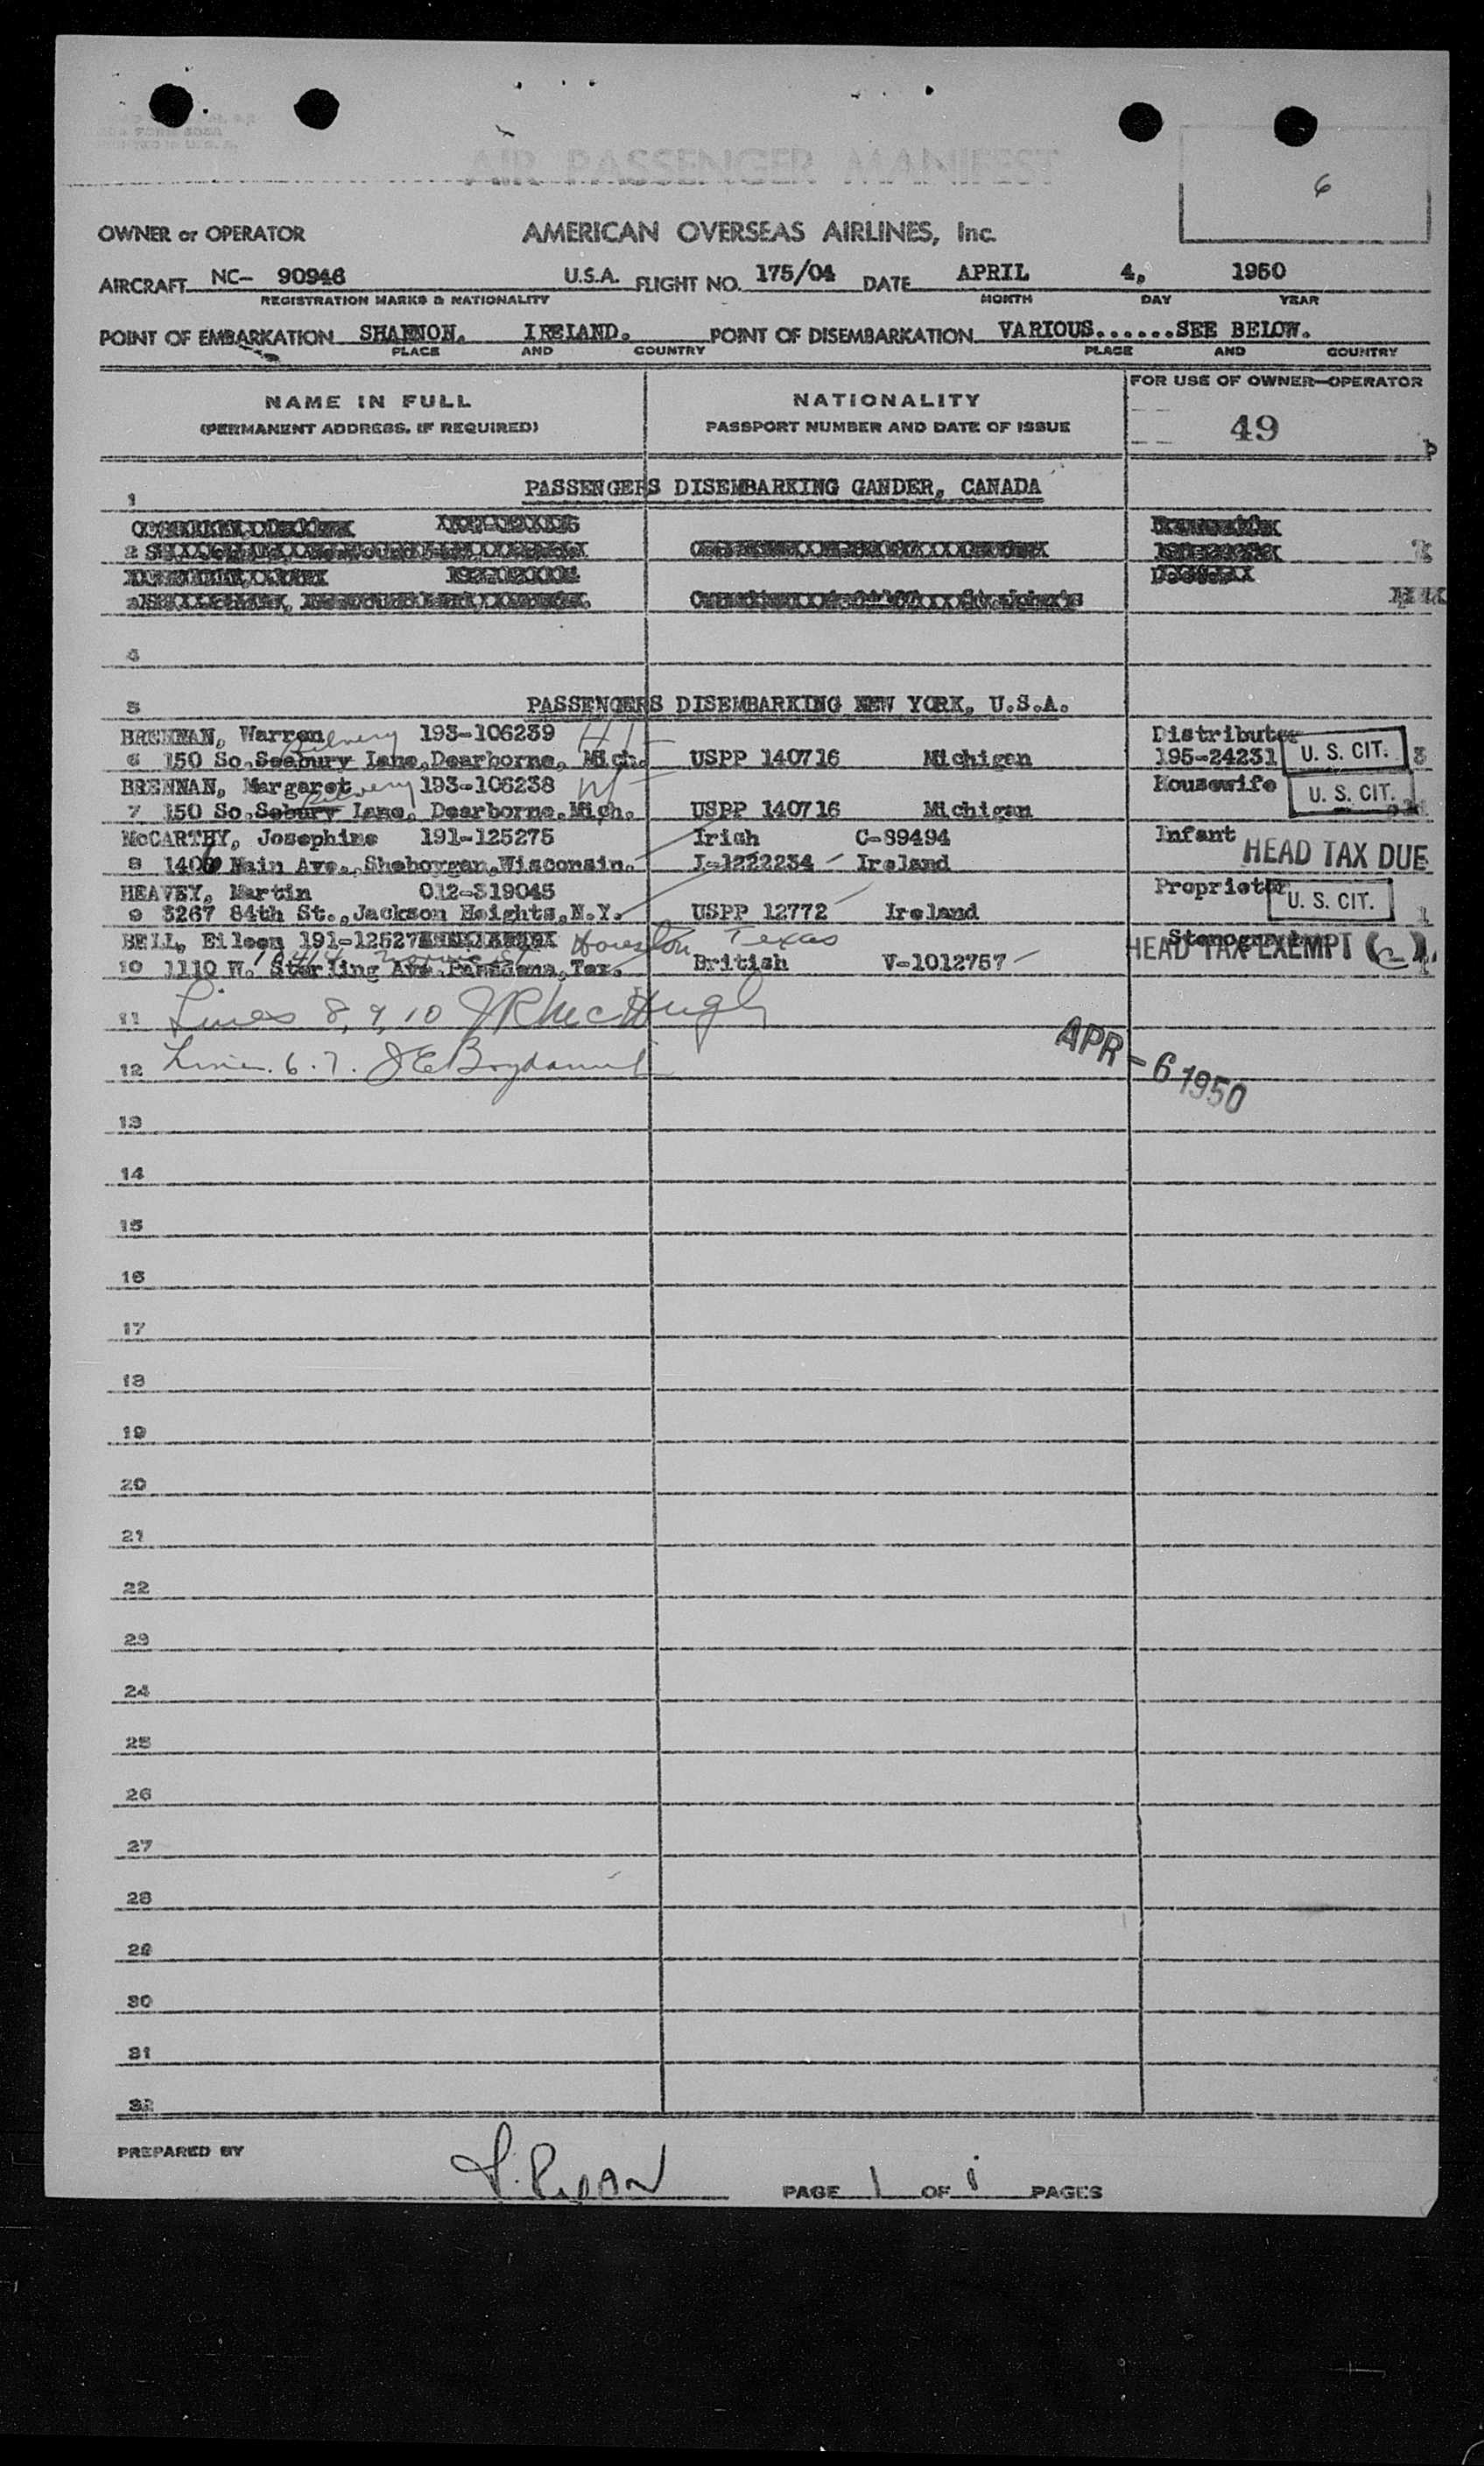 AIR PASSENGER MANIFEST
6
OWNER or OPERATOR AMERICAN OVERSEAS AIRLINES, Inc.
AIRCRAFT NC- 90946 U.S.A. FLIGHT NO. 175/04 DATE APRIL 4, 1950
REGISTRATION MARKS & NATIONALITY MONTH DAY YEAR
POINT OF EMBARKATION SHANNON. IRELAND. POINT OF DISEMBARKATION VARIOUS......SEE BELOW.
PLACE AND COUNTRY PLACE AND COUNTRY
NAME IN FULL NATIONALITY FOR USE OF OWNER—OPERATOR
(PERMANENT ADDRESS, IF REQUIRED) PASSPORT NUMBER AND DATE OF ISSUE 49
1 PASSENGERS DISEMBARKING GANDER, CANADA
2
3
4
5 PASSENGERS DISEMBARKING NEW YORK, U.S.A.
BRENNAN, Warren 193-106239 Distributer
6 150 So. Seabury Lane, Dearborne, Mich. USPP 140716 Michigan 195-24231 U. S. CIT.
BRENNAN, Margaret 193-106238 Housewife
7 150 So. Sebury Lane, Dearborne, Mich. USPP 140716 Michigan U. S. CIT.
McCARTHY, Josephine 191-125275 Irish C-89494 Infant
8 1408 Main Ave., Sheboygan, Wisconsin. I-1222234 Ireland HEAD TAX DUE
HEAVEY, Martin 012-319045 Proprietor
9 3267 84th St., Jackson Heights, N.Y. USPP 12772 Ireland U. S. CIT. 1
BELL, Eileen 191-12527 Houston Texas Stenographer
10 1110 W. Sterling Ave. Pasadena, Tex. British V-1012757 HEAD TAX EXEMPT
11 Lines 8, 9, 10 JR McHugh
12 Lines 6. 7.
APR - 6 1950
13
14
15
16
17
18
19
20
21
22
23
24
25
26
27
28
29
30
31
32
PREPARED BY
PAGE 1 OF 1 PAGES